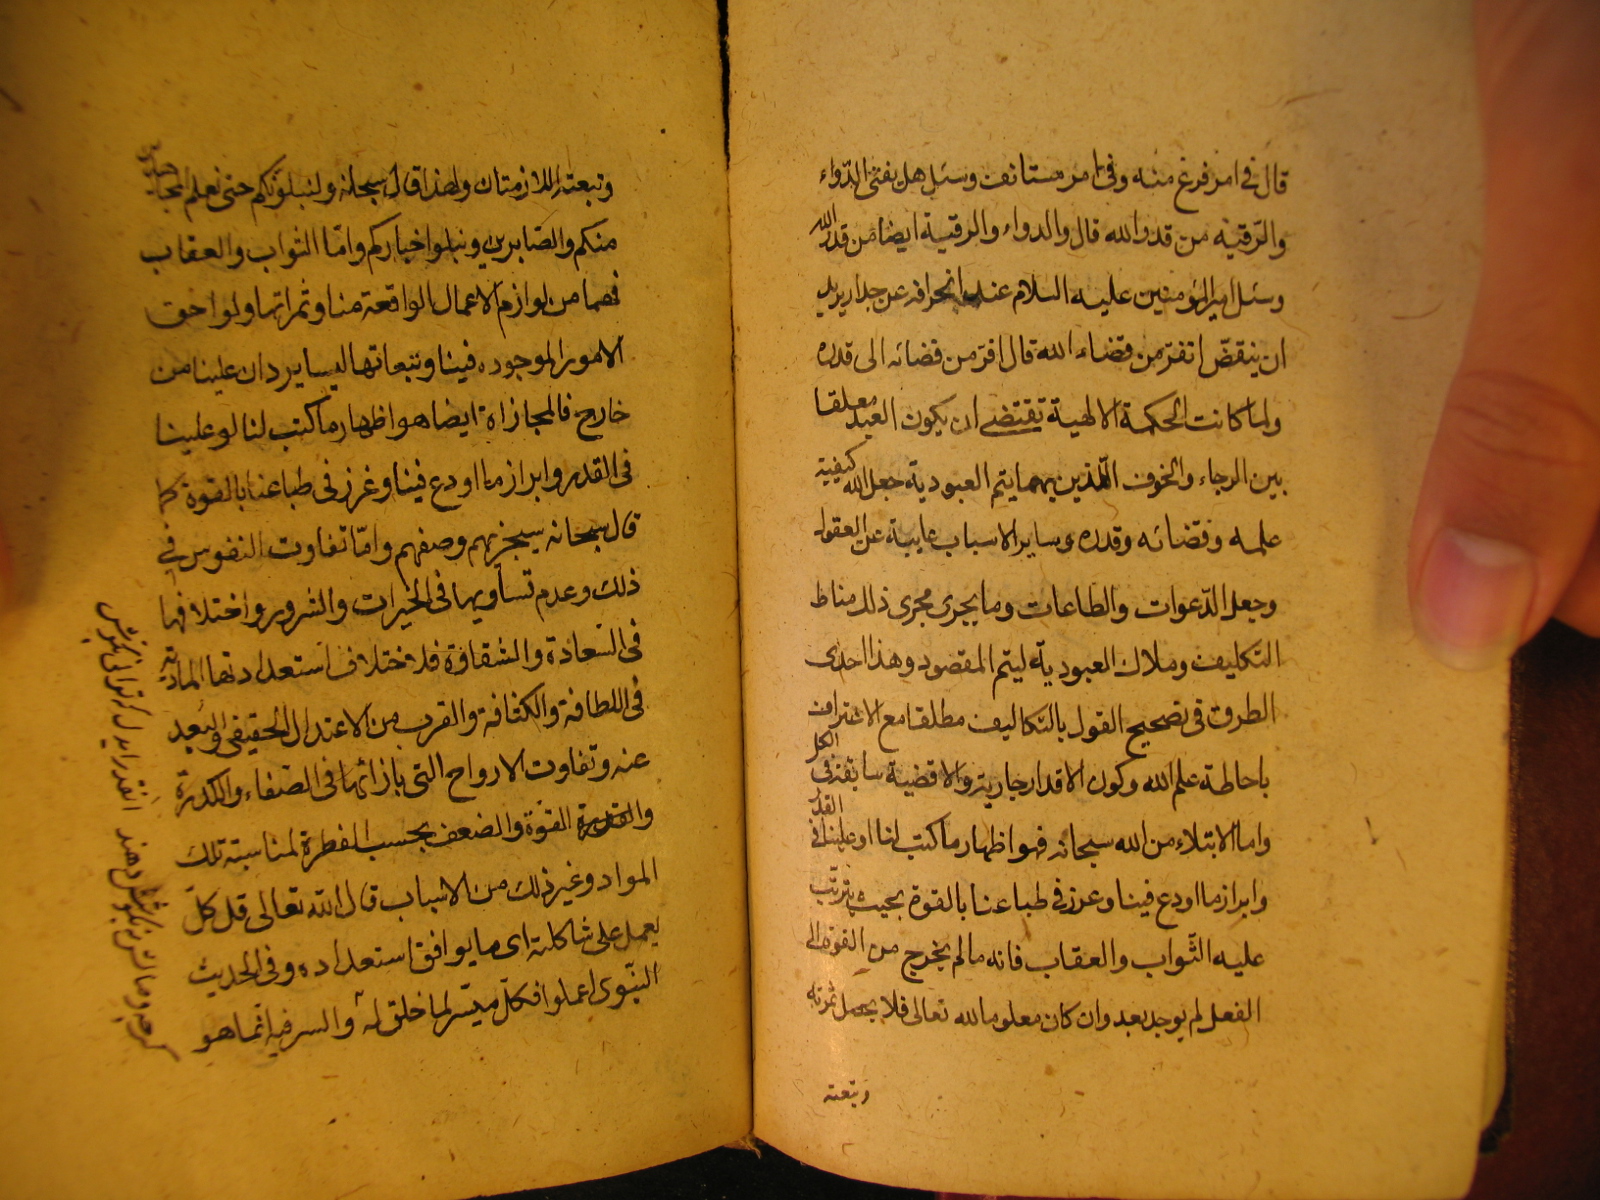 قال في امر فرغ منه وفى امر مستانف وسئل هل يغنى الدّواء
والرّقية من قدر الله قال والدواء والرقية ايضا من قدر الله
وسئل امير المؤمنين عليه السلام عند انحرافه عن جدار يريد
ان ينقضّ اتفرّ من قضاء الله قال افرّ من قضائه الى قدره
ولما كانت الحكمة الالهية تقتضى ان يكون العبد معلقا
بين الرجاء والخوف اللّذين بهما يتم العبودية جعل الله كيفية
علمه وقضائه وقدره وساير الاسباب غايبة عن العقول
وجعل الدّعوات والطاعات وما يجرى مجرى ذلك مناط
التكليف وملاك العبودية ليتم المقصود وهذا احدى
الطرق فى تصحيح القول بالتكاليف مطلقا مع الاعتراف
باحاطة علم الله وكون الاقدار جارية والاقضية سابقة فى الكل
واما الابتلاء من الله سبحانه فهو اظهار ما كتب لنا او علينا فى القدر
وابراز ما اودع فينا وغرز فى طباعنا بالقوة بحيث يترتّب
عليه الثّواب والعقاب فانه ما لم يخرج من القوة الى
الفعل لم يوجد بعد وان كان معلوما لله تعالى فلا يحصل ثمرته
وتبعته
وتبعته اللازمتان ولهذا قال سبحانه ولنبلونّكم حتى نعلم المجاهدين
منكم والصّابرين ونبلو اخباركم وامّا الثواب والعقاب
فهما من لوازم الاعمال الواقعة منا وثمراتها ولواحق
الامور الموجوده فينا وتبعاتها ليسا يردان علينا من
خارج فالمجازاة ايضا هو اظهار ما كتب لنا او علينا
فى القدر وابراز ما اودع فينا وغرز فى طباعنا بالقوة كما
قال سبحانه سيجزيهم وصفهم وامّا تفاوت النفوس في
ذلك وعدم تساويها فى الخيرات والشرور واختلافها
فى السّعادة والشقاوة فلاختلاف استعداداتها المادّية
فى اللطافة والكثافة والقرب من الاعتدال الحقيقى والبعد
عنه وتفاوت الارواح التى بازائها فى الصّفاء والكدرة
والقوّة والضعف بحسب الفطرة لمناسبة تلك
المواد وغير ذلك من الاسباب قال الله تعالى قل كلّ
يعمل على شاكلته اى ما يوافق استعداده وفى الحديث
النّبوى اعملوا فكلّ ميسّر لما خلق له والسر فيه انّما هو
گرچه وصالش نه بكوشش دهند آنقدر ايدل كه توانى بكوش